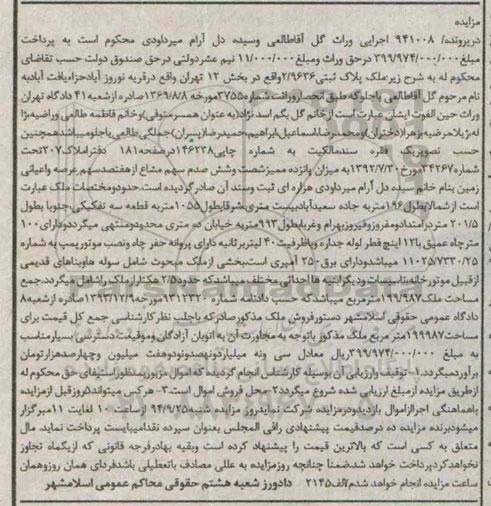 مزایده
درپرونده/ ۹۴۱۰۰۸ اجرایی وراث گل آقاطالعی وسیده دل آرام میرداودی محکوم است به پرداخت
مبلغ ۳۹۹/۹۷۴/۰۰۰/۰۰۰ درحق وراث ومبلغ ۱۱/۰۰۰/۰۰۰ نیم عشردولتی درحق صندوق دولت حسب تقاضای
محکوم له به شرح زیر:ملک پلاک ثبتی۲/۹۶۳۶واقع در بخش ۱۲ تهران واقع درقریه نوروز آبادحزاءیافت آبادبه
نام مرحوم گل آقاطالعی یاجلوکه طبق انحصاروراثت شماره۳۷۵۵مورخه ۱۳۶۹/۸/۸صادره ازشعبه۴۱ دادگاه تهران
وراث حین الفوت ایشان عبارت است ازخانم گل بگم اسدنژاد(به عنوان همسرمتوفی)وخانم فاطمه طالعی وراضیه،ژا
له،ژیلا،مرضیه،زهرا(دختران)ومحمدرضا،اسماعیل،ابراهیم،حمیدرضا(پسران)جملگی،طالعی یاجلومیباشدهمچنین
حسب تصویریک فقره سندمالکیت به شماره چاپی۱۴۶۲۳۸درصفحه۱۸۱ دفتراملاک۲۰۷تحت
شماره۳۴۲۶۷مورخ۱۳۹۲/۷/۳۰به میزان پانزده ممیزشصت وشش صدم سهم مشاع ازهفتصدسهم عرصه واعیانی
زمین بنام خانم سیده دل آرام میرداودی هزاره ای ثبت وسند آن صادرگردیده است.حدودومختصات ملک عبارت
است ازشمالابطول۱۹۶متربه جاده سعیدآبادبیست متری،شرقابطول۱۰۵۵متربه قطعه سه تفکیکی،جنوبا بطول
۲۰۱/۵ مترامتدادومفروزفیروزبهرام وغربابطول۹۹۳متربه خیابان ده متری محدودومنتهی میگردددودارای۱۰۰
مترچاه عمیق با۱۲ اینچ قطر لوله جداره وباظرفیت۴۰ لیتربرثانیه دارای پروانه حفر چاه ونصب موتورپمپ به شماره
۱۱۰۲۵/۷۳۳۰/۲۵ میباشدودارای برق۲۵۰ آمپری است.بخشی ازملک مبحوث شامل سوله هاوبناهای قدیمی
ازقبیل موتورخانه،تاسیسات ودیگرابنیه هااحداثی مختلف میباشدکه حدود۲/۵هکتارازملک راشامل میگردد.جمع
مساحت ملک۱۹۹/۹۸۷مترمربع میباشدکه حسب دادنامه شماره ۹۳۱۲۳۲مورخه۱۳۹۳/۱۲/۹صادره ازشعبه۸
دادگاه عمومی حقوقی اسلامشهر دستورفروش ملک مذکورصادرکه باجلب نظرکارشناسی جمع کل قیمت برای
مساحت۱۹۹۹۸۷متر مربع ملک مذکور باتوجه به مجاورت آن به اتوبان آزادگان وموقعیت دسترسی بسیارمناسب
به مبلغ ۳۹۹/۹۷۴/۰۰۰/۰۰۰ریال معادل سی ونه میلیاردونهصدونودوهفت میلیون وچهارصدهزارتومان
برآوردمیگردد.۱- توقیف وارزیابی آن بوسیله کارشناس انجام گردیده که اموال مزبوربمنظوراستیفای حق محکوم له
ازطریق مزایده ازمبلغ ارزیابی شده شروع میگردد۲-محل فروش اموال است.۳- هرکس میتواند۵روزقبل ازمزایده
باهماهنگی اجراازاموال بازدیدودرمزایده شرکت نمایدروز مزایده شنبه۹۴/۹/۲۵ ازساعت۱۰ لغایت ۱۱میرگزار
میشودبرنده مزایده ده درصدقیمت پیشنهادی رافی المجلس بعنوان سپرده نقدامیبایست پرداخت نماید. مال
متعلق به کسی است که بالاترین قیمت را پیشنهاد کرده است وبقیه بهادرفرجه قانونی که ازیکماه تجاوز
نخواهدکردپرداخت خواهد شد.ضمنا چنانچه روزمزایده به عللی مصادف باتعطیلی باشدفردای همان روزوهمان
ساعت مزایده انجام خواهد شد.م/الف۲۱۴۵ دادورز شعبه هشتم حقوقی محاکم عمومی اسلامشهر